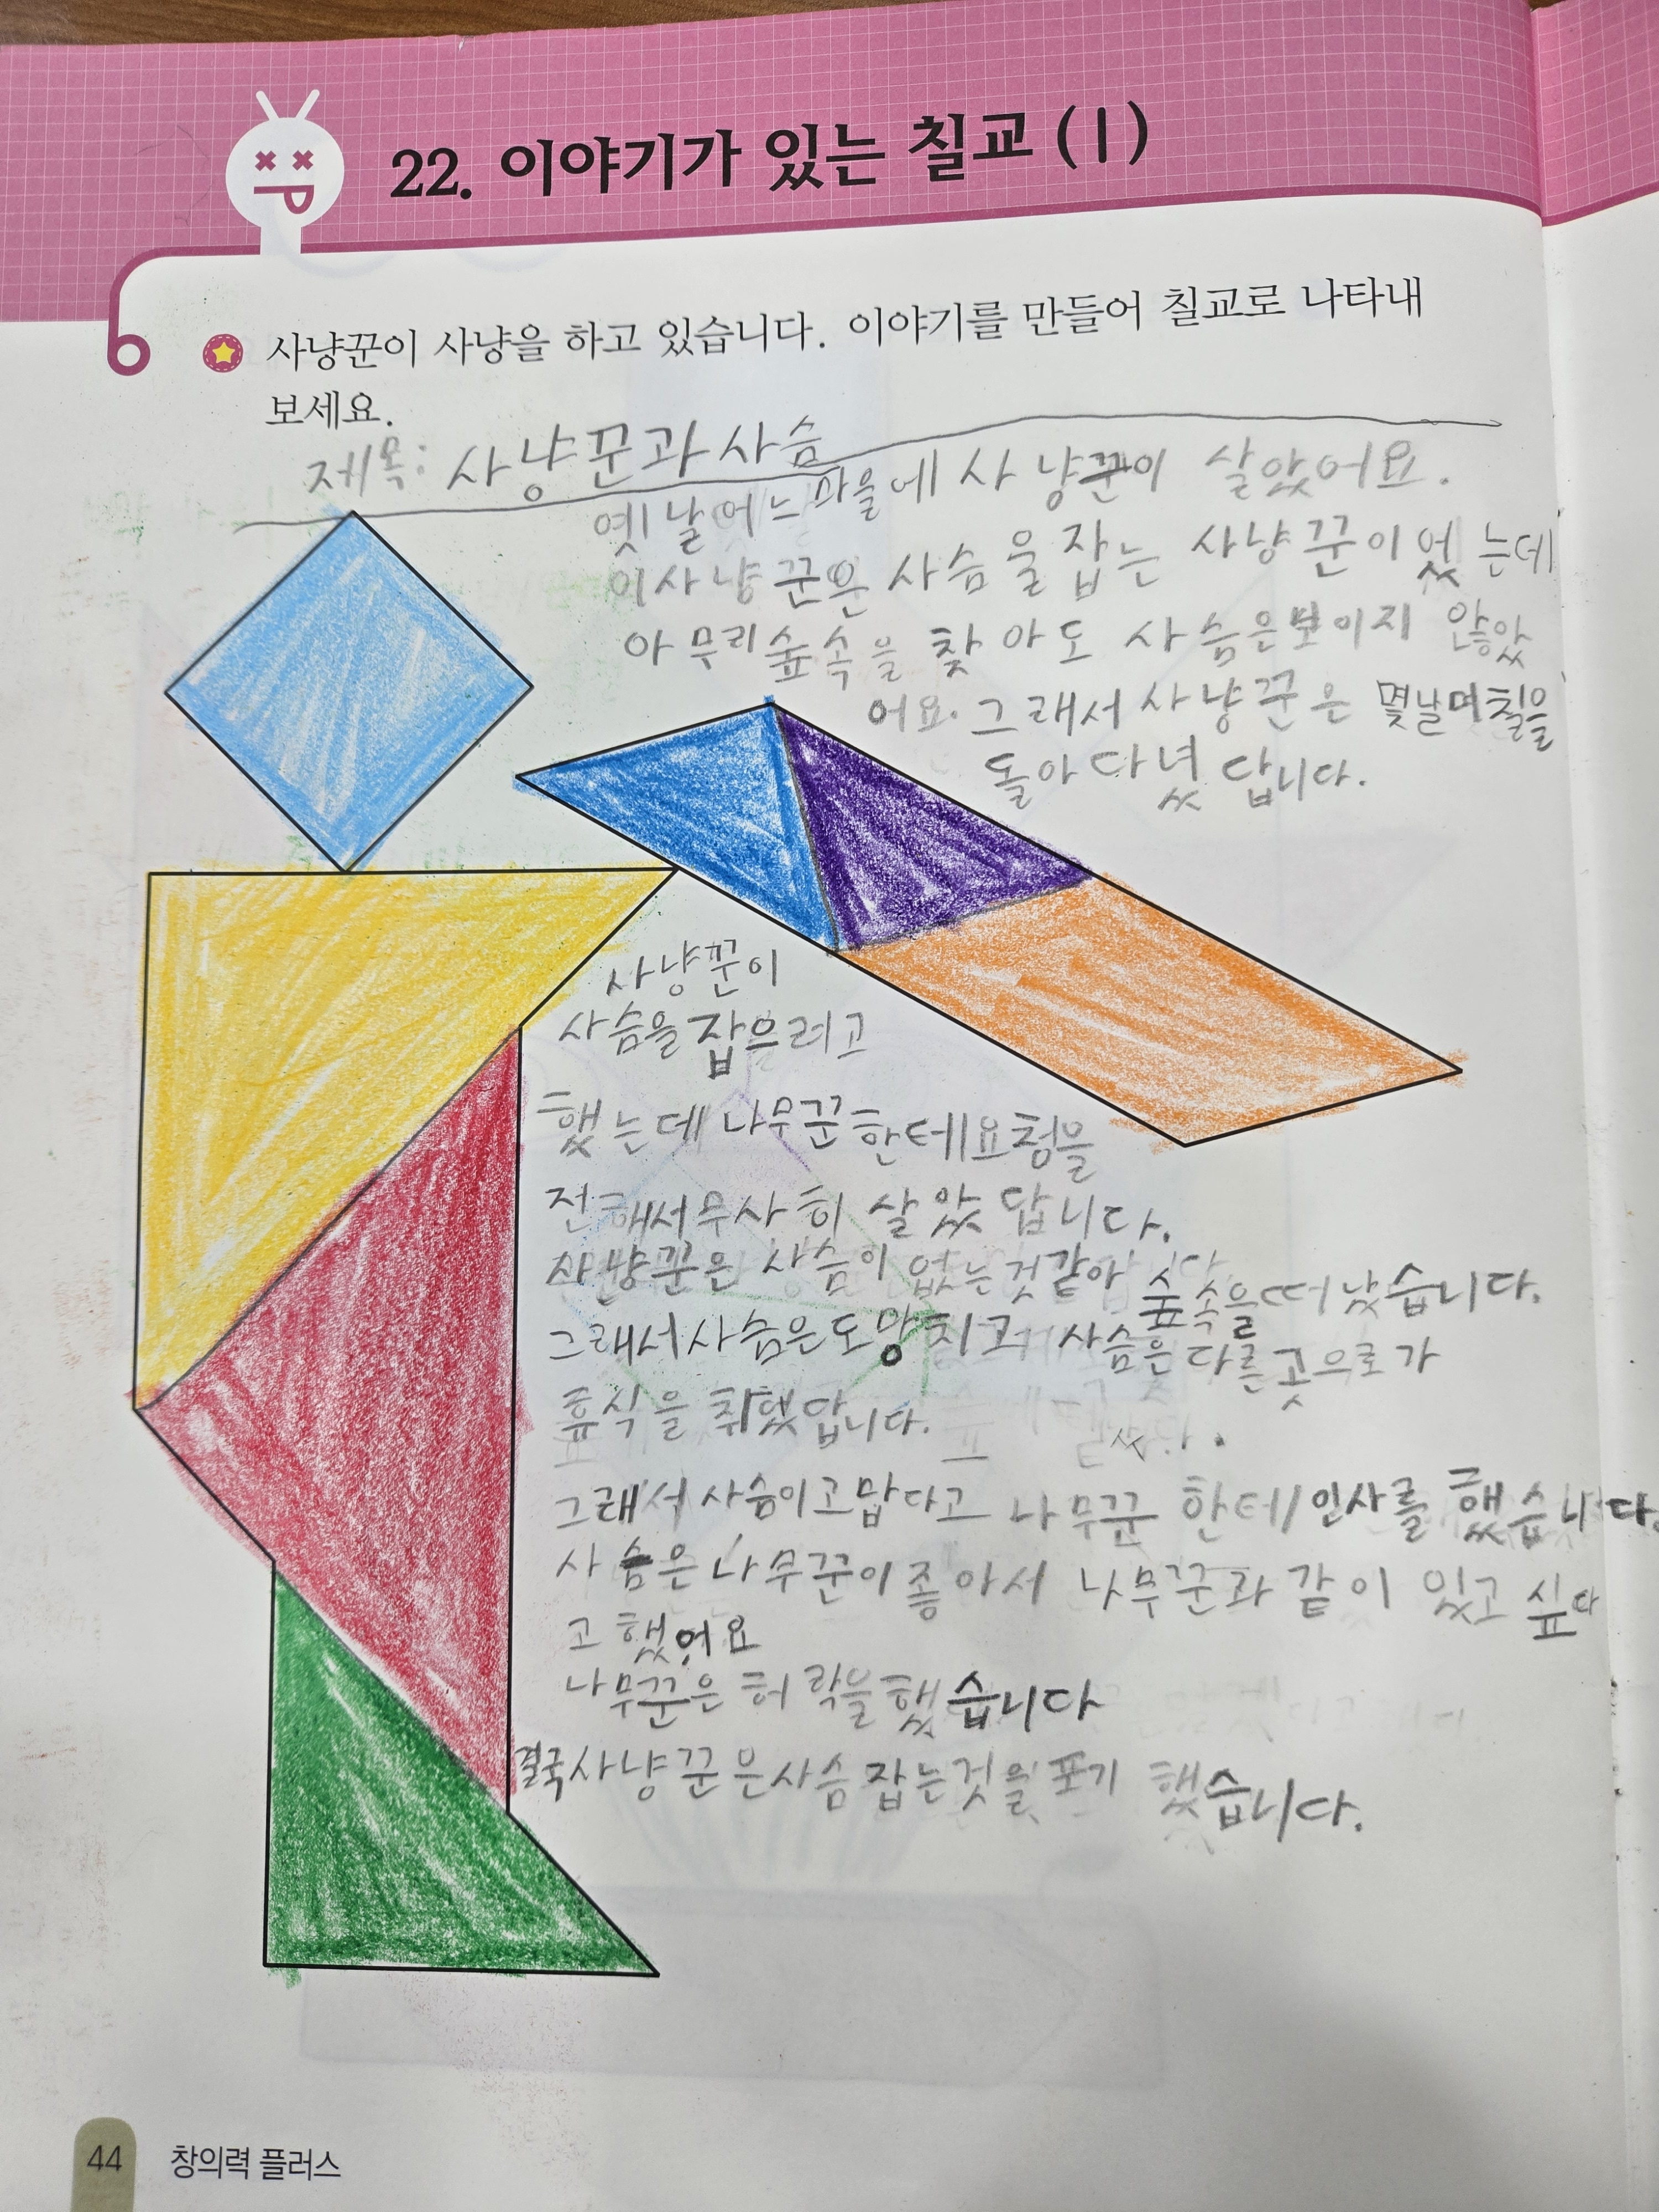 22. 이야기가 있는 칠교 (1)
사냥꾼이 사냥을 하고 있습니다. 이야기를 만들어 칠교로 나타내
보세요.
제목: 사냥꾼과 사슴
옛날 어느 마을에 사냥꾼이 살았어요.
이 사냥꾼은 사슴을 잡는 사냥꾼이었는데
아무리 숲속을 찾아도 사슴은 보이지 않았
어요. 그래서 사냥꾼은 몇날며칠을
돌아다녔답니다.
사냥꾼이
사슴을 잡으려고
했는데 나무꾼한테 요청을
전해서 무사히 살았답니다.
사냥꾼은 사슴이 없는것 같아 숲속을 떠났습니다.
그래서 사슴은 도망치고 사슴은 다른 곳으로 가
휴식을 취했답니다.
그래서 사슴이 고맙다고 나무꾼한테 인사를 했습니다.
사슴은 나무꾼이 좋아서 나무꾼과 같이 있고 싶다
고 했어요
나무꾼은 허락을 했습니다
결국 사냥꾼은 사슴 잡는것을 포기 했습니다.
44 창의력 플러스